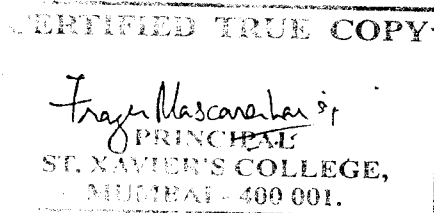 CERTIFIED TRUE COPY
Frazer Mascarenhas sj
PRINCIPAL
ST. XAVIER'S COLLEGE,
MUMBAI - 400 001.